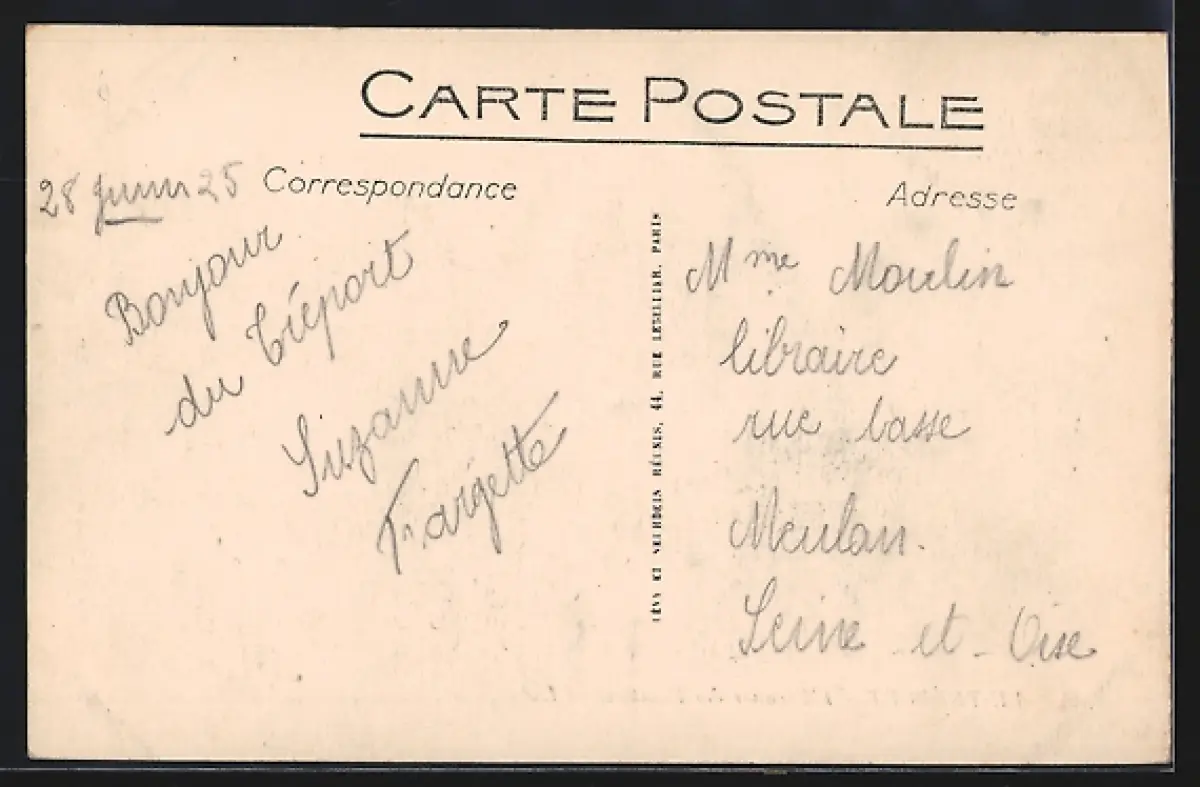 CARTE POSTALE
Correspondance
Adresse
28 Juin 25
Bonjour
du Tréport
Suzanne
Fargette
LÉVY ET NEURDEIN RÉUNIS, 44, RUE LETELLIER, PARIS
Mme Moulin
libraire
rue basse
Meulan.
Seine et Oise